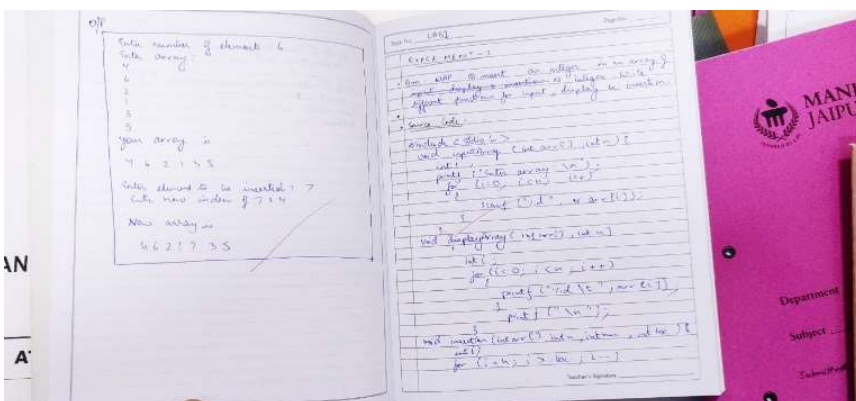 O/P
Enter number of elements : 6
Enter array :
4
6
2
1
3
5
your array is
4 6 2 1 3 5
Enter element to be inserted : 7
Enter new index of 7 : 4
New array is
4 6 2 1 7 3 5
LAB 1
EXPERIMENT - 1
Aim WAP to insert an integer in an array &
different functions for input, display & insertion
Source Code :
#include <stdio.h>
void inputArray (int arr[], int n) {
int i;
printf ("Enter array \n");
for (i=0; i<n; i++)
{
scanf ("%d", & arr[i]);
}
}
void displayArray (int arr[], int n)
int i;
for (i=0; i<n; i++)
printf ("%d \t", arr[i]);
}
printf ("\n");
}
void insertion (int arr[], int n, int num, int loc) {
int i;
for (i=n; i>loc; i--)
Teacher's Signature
MANI
JAIPU
Department
Subject
AN